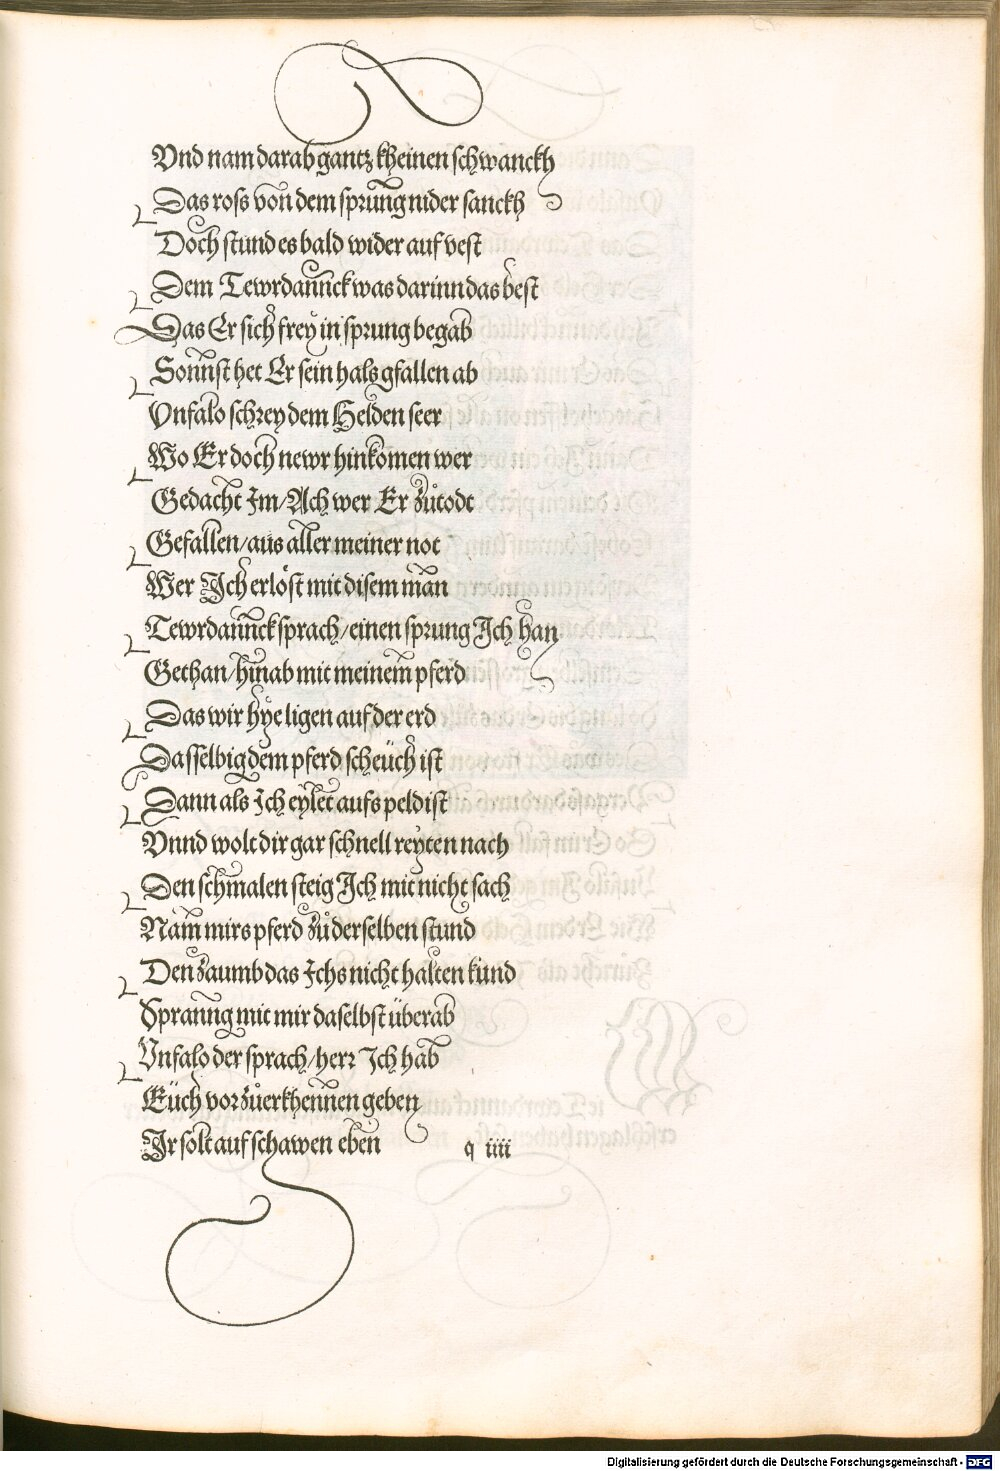 Vnd nam darab gantz kheinen schwanckh
Das ross von dem sprung nider sanckh
Doch stund es bald wider auf vest
Dem Tewrdannck was darinn das best
Das Er sich frey in sprung begab
Sonnst het Er sein hals gfallen ab
Vnfalo schrey dem Helden seer
Wo Er doch newr hinkomen wer
Gedacht Im/Ach wer Er zůtodt
Gefallen/aus aller meiner not
Wer Ich erlöst mit disem man
Tewrdannck sprach/einen sprung Ich han
Gethan/hinab mit meinem pferd
Das wir hye ligen auf der erd
Dasselbig dem pferd scheüch ist
Dann als Ich eylet aufs peldist
Vnnd wolt dir gar schnell reyten nach
Den schmalen steig Ich mit nicht sach
Nam mirs pferd zů derselben stund
Den zaumb das Ichs nicht halten kund
Spranng mit mir daselbst überab
Vnfalo der sprach/herr Ich hab
Eüch vor zůerkhennen geben
Ir solt auf schawen eben q iiii
Digitalisierung gefördert durch die Deutsche Forschungsgemeinschaft - DFG